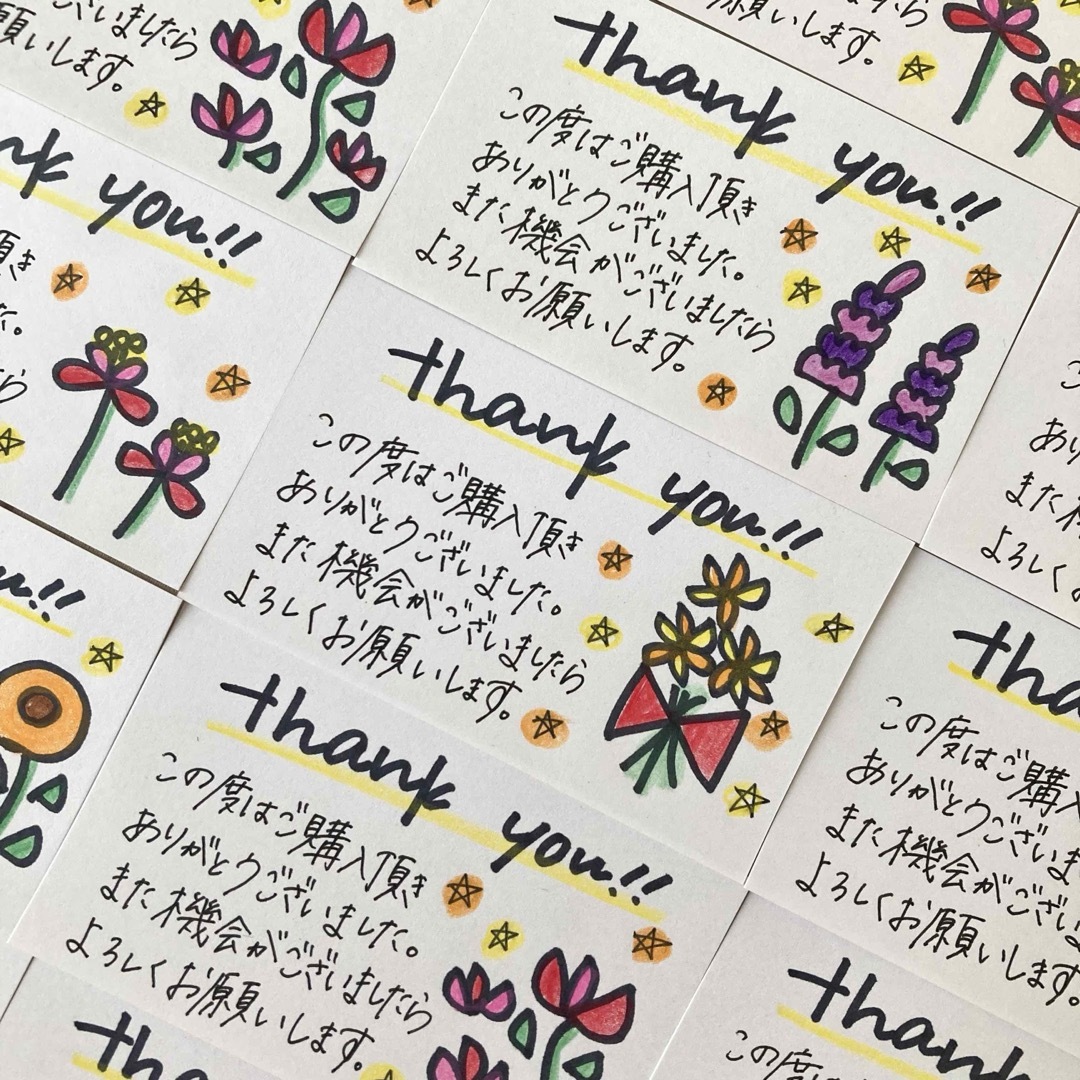 ございましたら
願いします。
thank you!!
この度はご購入頂き
ありがとうございました。
また機会がございましたら
よろしくお願いします。
nk you!!
頂き
た。
たら
thank you!!
この度はご購入頂き
ありがとうございました。
また機会がございましたら
よろしくお願いします。
you!!
thank you!!
この度はご購入頂き
ありがとうございました。
また機会がございましたら
よろしくお願いします。
こ
あり
また機
よろしくお
tha
この度はご購入
ありがとうございま
また機会がござい
よろしくお願いします
thank
この度は
thank